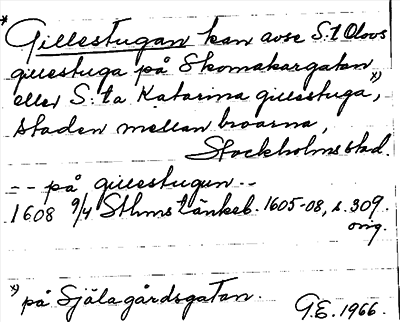 * Gillestugan kan avse S:t Olovs
gillestuga på Skomakargatan
eller S:ta Katarina gillestuga *),
staden mellan broarna,
Stockholms stad.
-- på gillestugun --
1608 9/4 Sthms tänkeb. 1605-08, s. 309.
orig.
*) på Själagårdsgatan.
G.E. 1966.